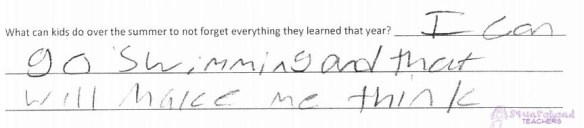 What can kids do over the summer to not forget everything they learned that year? I can
go swimming and that
will make me think
Squarehead
TEACHERS